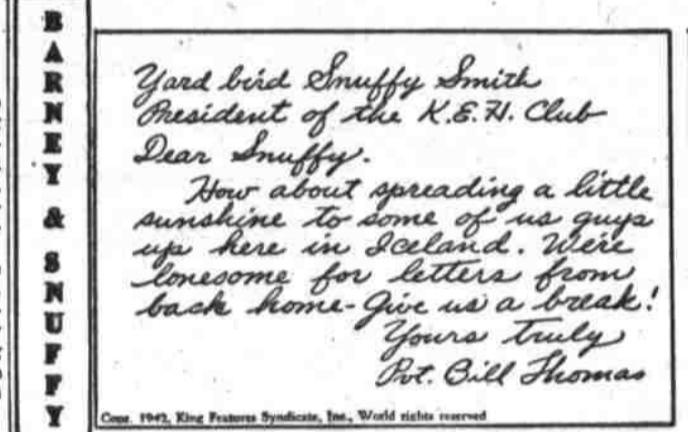 BARNEY & SNUFFY
Yard bird Snuffy Smith
President of the K.E.H. Club
Dear Snuffy.
How about spreading a little
sunshine to some of us guys
up here in Iceland. We're
lonesome for letters from
back home - Give us a break!
Yours truly
Pvt. Bill Thomas
Copr. 1942, King Features Syndicate, Inc., World rights reserved